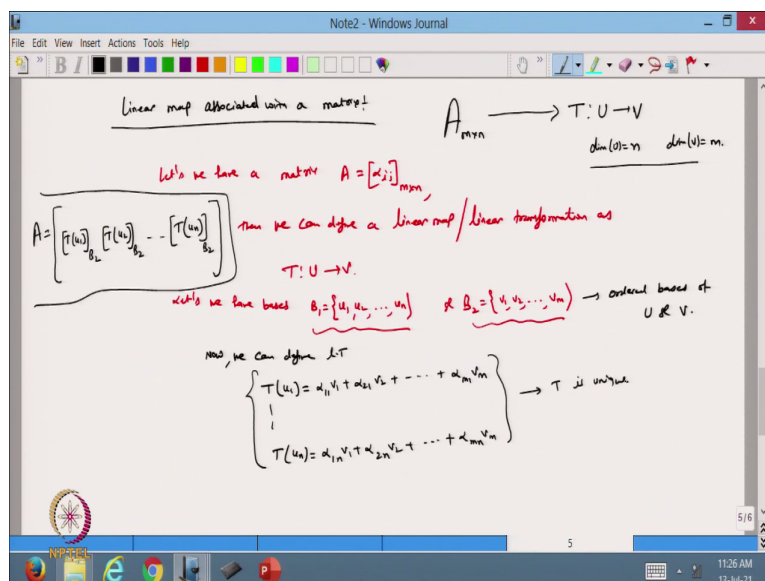 Note2 - Windows Journal
File Edit View Insert Actions Tools Help
B I
Linear map associated with a matrix:
A_{m×n} ⟶ T: U → V
dim(U)=n dim(V)=m.
Let's we have a matrix A = [α_{ij}]_{m×n},
A = [[T(u_1)]_{B_2} [T(u_2)]_{B_2} -- - [T(u_n)]_{B_2}]
then we can define a linear map / linear transformation as
T: U → V.
Let's we have bases B_1 = {u_1, u_2, ..., u_n} & B_2 = {v_1, v_2, ..., v_m} → ordered bases of
U & V.
Now, we can define L.T
T(u_1) = α_{11}v_1 + α_{21}v_2 + - - - + α_{m1}v_m
→ T is unique
T(u_n) = α_{1n}v_1 + α_{2n}v_2 + ... + α_{mn}v_m
5/6
5
NPTEL
11:26 AM
13-Jul-21